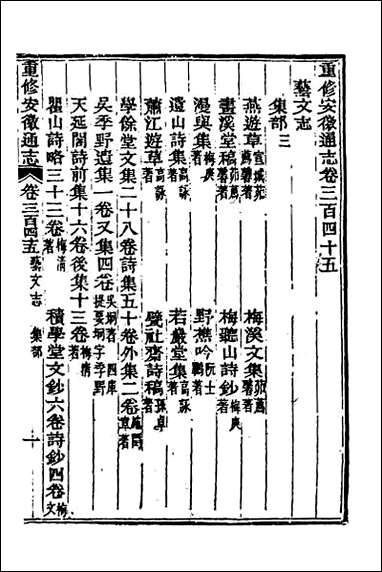 重修安徽通志卷三百四十五
藝文志
集部三
燕遊草宣城茆薦馨著 梅溪文集茆薦馨著
書溪堂稿茆薦馨著 梅聽山詩鈔梅庚著
漫與集梅庚著 野樵吟阮士鵬著
遺山詩集高詠著 若巖堂集高詠著
蕭江遊草高詠著 甓社齋詩稿孫卓著
學餘堂文集二十八卷詩集五十卷外集二卷施閏章著
吳季野遺集一卷又集四卷吳坰著四庫提要坰字季野
天延閣詩前集十六卷後集十三卷梅清著
瞿山詩略三十三卷梅清著 積學堂文鈔六卷詩鈔四卷梅文
重修安徽通志 卷三百四十五藝文志 集部 一